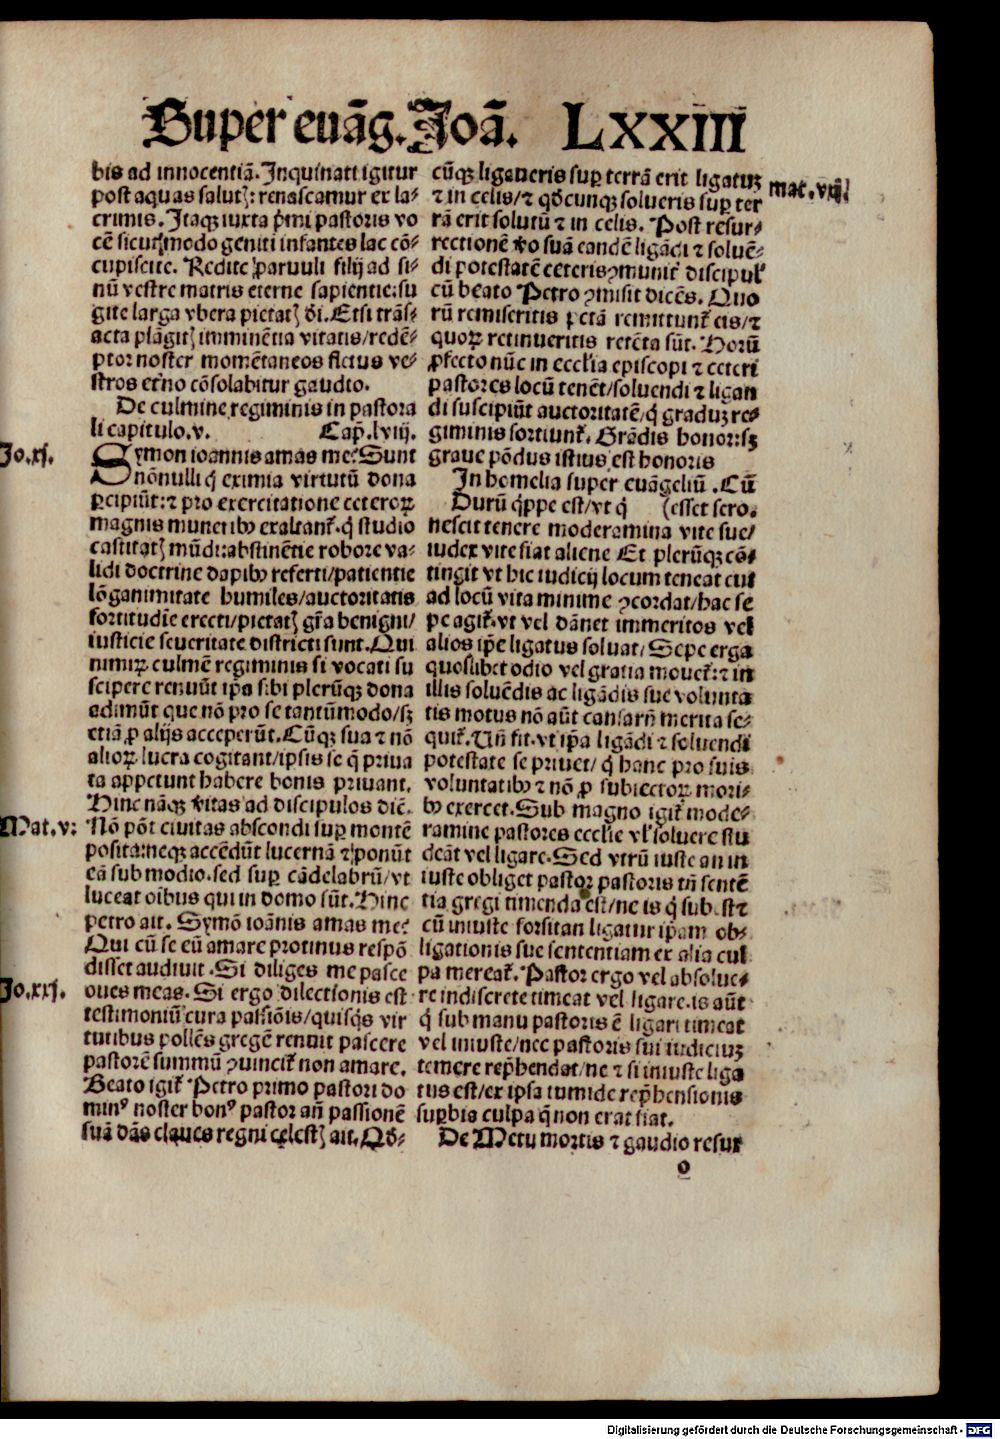 Super euāg. Joā. LXXIII
bis ad innocentiā. Inquinati igitur
post aquas salutꝭ: renascamur ex la-
crimis. Itaqꝫ iuxta p̄mi pastoris vo
cē sicut modo geniti infantes lac cō-
cupiscite. Redite paruuli filij ad si-
nū vestre matris eterne sapientie: su
gite larga vbera pietatꝭ dī. Etsi trās-
acta plāgitꝭ imminētia vitatis/redē-
ptor noster momētaneos fletus ve-
stros et̄no cōsolabitur gaudio.
De culmine regiminis in pastora
li capitulo. v. Cap̄. lviij.
Jo. xj.
Symon ioannis amas me? Sunt
nōnulli q̄ eximia virtutū dona
ꝑcipiūt: ⁊ pro exercitatione ceteroꝝ
magnis muneribꝰ exaltant̄. q̄ studio
castitatꝭ mūdi: abstinētie robore va-
lidi doctrine dapibꝰ referti/patientie
lōganimitate humiles/auctoritatis
fortitudīe erecti/pietatꝭ gr̄a benigni/
iusticie seueritate districti sunt. Qui
nimiꝝ culmē regiminis si vocati su
scipere renuūt ip̄a sibi plerūqꝫ dona
adimūt que nō pro se tantūmodo/sꝫ
etiā ꝓ alijs acceperūt. Cūqꝫ sua ⁊ nō
alioꝝ lucra cogitant/ipsis se q̄ priua
ta appetunt habere bonis priuant.
Hinc nāqꝫ v̄itas ad discipulos dic̄.
Mat. v:
Nō pōt ciuitas abscondi suꝑ montē
posita: neqꝫ accēdūt lucernā ⁊ ponūt
eā sub modio. sed suꝑ cādelabrū/vt
luceat oībus qui in domo sūt. Hinc
petro ait. Symō ioānis amas me?
Qui cū se eū amare protinus respō
disset audiuit. Si diliges me pasce
Jo. xxj.
oues meas. Si ergo dilectionis est
testimoniū cura passiōis/quisq̄s vir
tutibus pollēs gregē renuit pascere
pastorē summū ꝯuincit̄ non amare.
Beato igit̄ Petro primo pastori do
minꝰ noster bonꝰ pastor an̄ passionē
suā dās claues regni celestꝭ ait. Qd̄-
cūqꝫ ligaueris suꝑ terrā erit ligatuꝫ
mat. viij.
⁊ in celis/⁊ qd̄cunqꝫ solueris suꝑ ter
rā erit solutū ⁊ in celis. Post resur-
rectionē v̄o suā eandē ligādi ⁊ soluē-
di potestatē ceteris ꝯmunit̄ discipul̓
cū beato Petro ꝯmisit dicēs. Quo
rū remiseritis pctā remittunt̄ eis/⁊
quoꝝ retinueritis retēta sūt. Horū
ꝓfecto nūc in eccl̓ia episcopi ⁊ ceteri
pastores locū tenēt/soluendi ⁊ ligan
di suscipiūt auctoritatē/q̄ graduꝫ re-
giminis sortiunt̄. Grādis honor: sꝫ
graue pōdus istius est honoris
In homelia super euāgeliū. Cū
Durū q̄ppe est/vt q̄ (esset sero.
nescit tenere moderamina vite sue/
iudex vite fiat aliene Et plerūqꝫ cō-
tingit vt hic iudicij locum teneat cui
ad locū vita minime ꝯcordat/hac se
pe agit̄. vt vel dānet immeritos vel
alios ip̄e ligatus soluat/ Sepe erga
quoslibet odio vel gratia mouet̄: ⁊ in
illis soluēdis ac ligādis sue volunta
tis motus nō aūt causarū merita se-
quit̄. Vn̄ fit. vt ip̄a ligādi ⁊ soluendi
potestate se priuet/ q̄ hanc pro suis
voluntatibꝰ ⁊ nō ꝓ subiectoꝝ mori-
bꝰ exercet. Sub magno igit̄ mode-
ramine pastores ecclie vl̓ soluere stu
deāt vel ligare. Sed vtrū iuste an in
iuste obliget pastor pastoris tn̄ sentē
tia gregi timenda est/ne is q̄ subest ⁊
cū iniuste forsitan ligatur ip̄am ob-
ligationis sue sententiam ex alia cul
pa mereat̄. Pastor ergo vel absolue-
re indiscrete timeat vel ligare. is aūt
q̄ sub manu pastoris ē ligari timeat
vel iniuste/nec pastoris sui iudiciuꝫ
temere rep̄hendat/ne ⁊ si iniuste liga
tus est/ex ipsa tumide rep̄hensionis
suꝑbia culpa q̄ non erat fiat.
De Metu mortis ⁊ gaudio resur
o
Digitalisierung gefördert durch die Deutsche Forschungsgemeinschaft - DFG